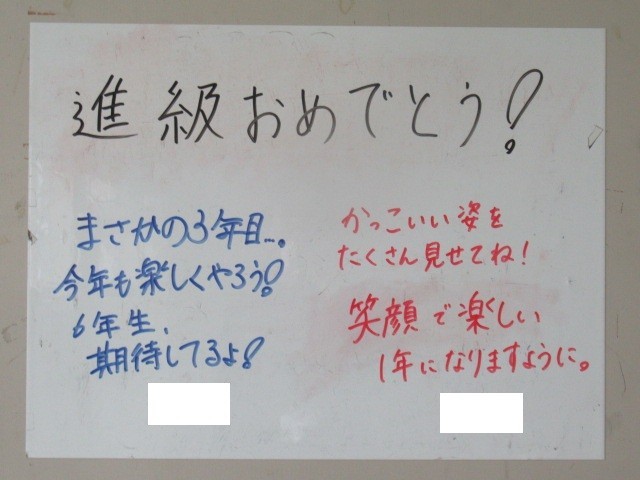 進級おめでとう！
まさかの3年目…。
今年も楽しくやろう！
6年生、
期待してるよ！
かっこいい姿を
たくさん見せてね！
笑顔で楽しい
1年になりますように。